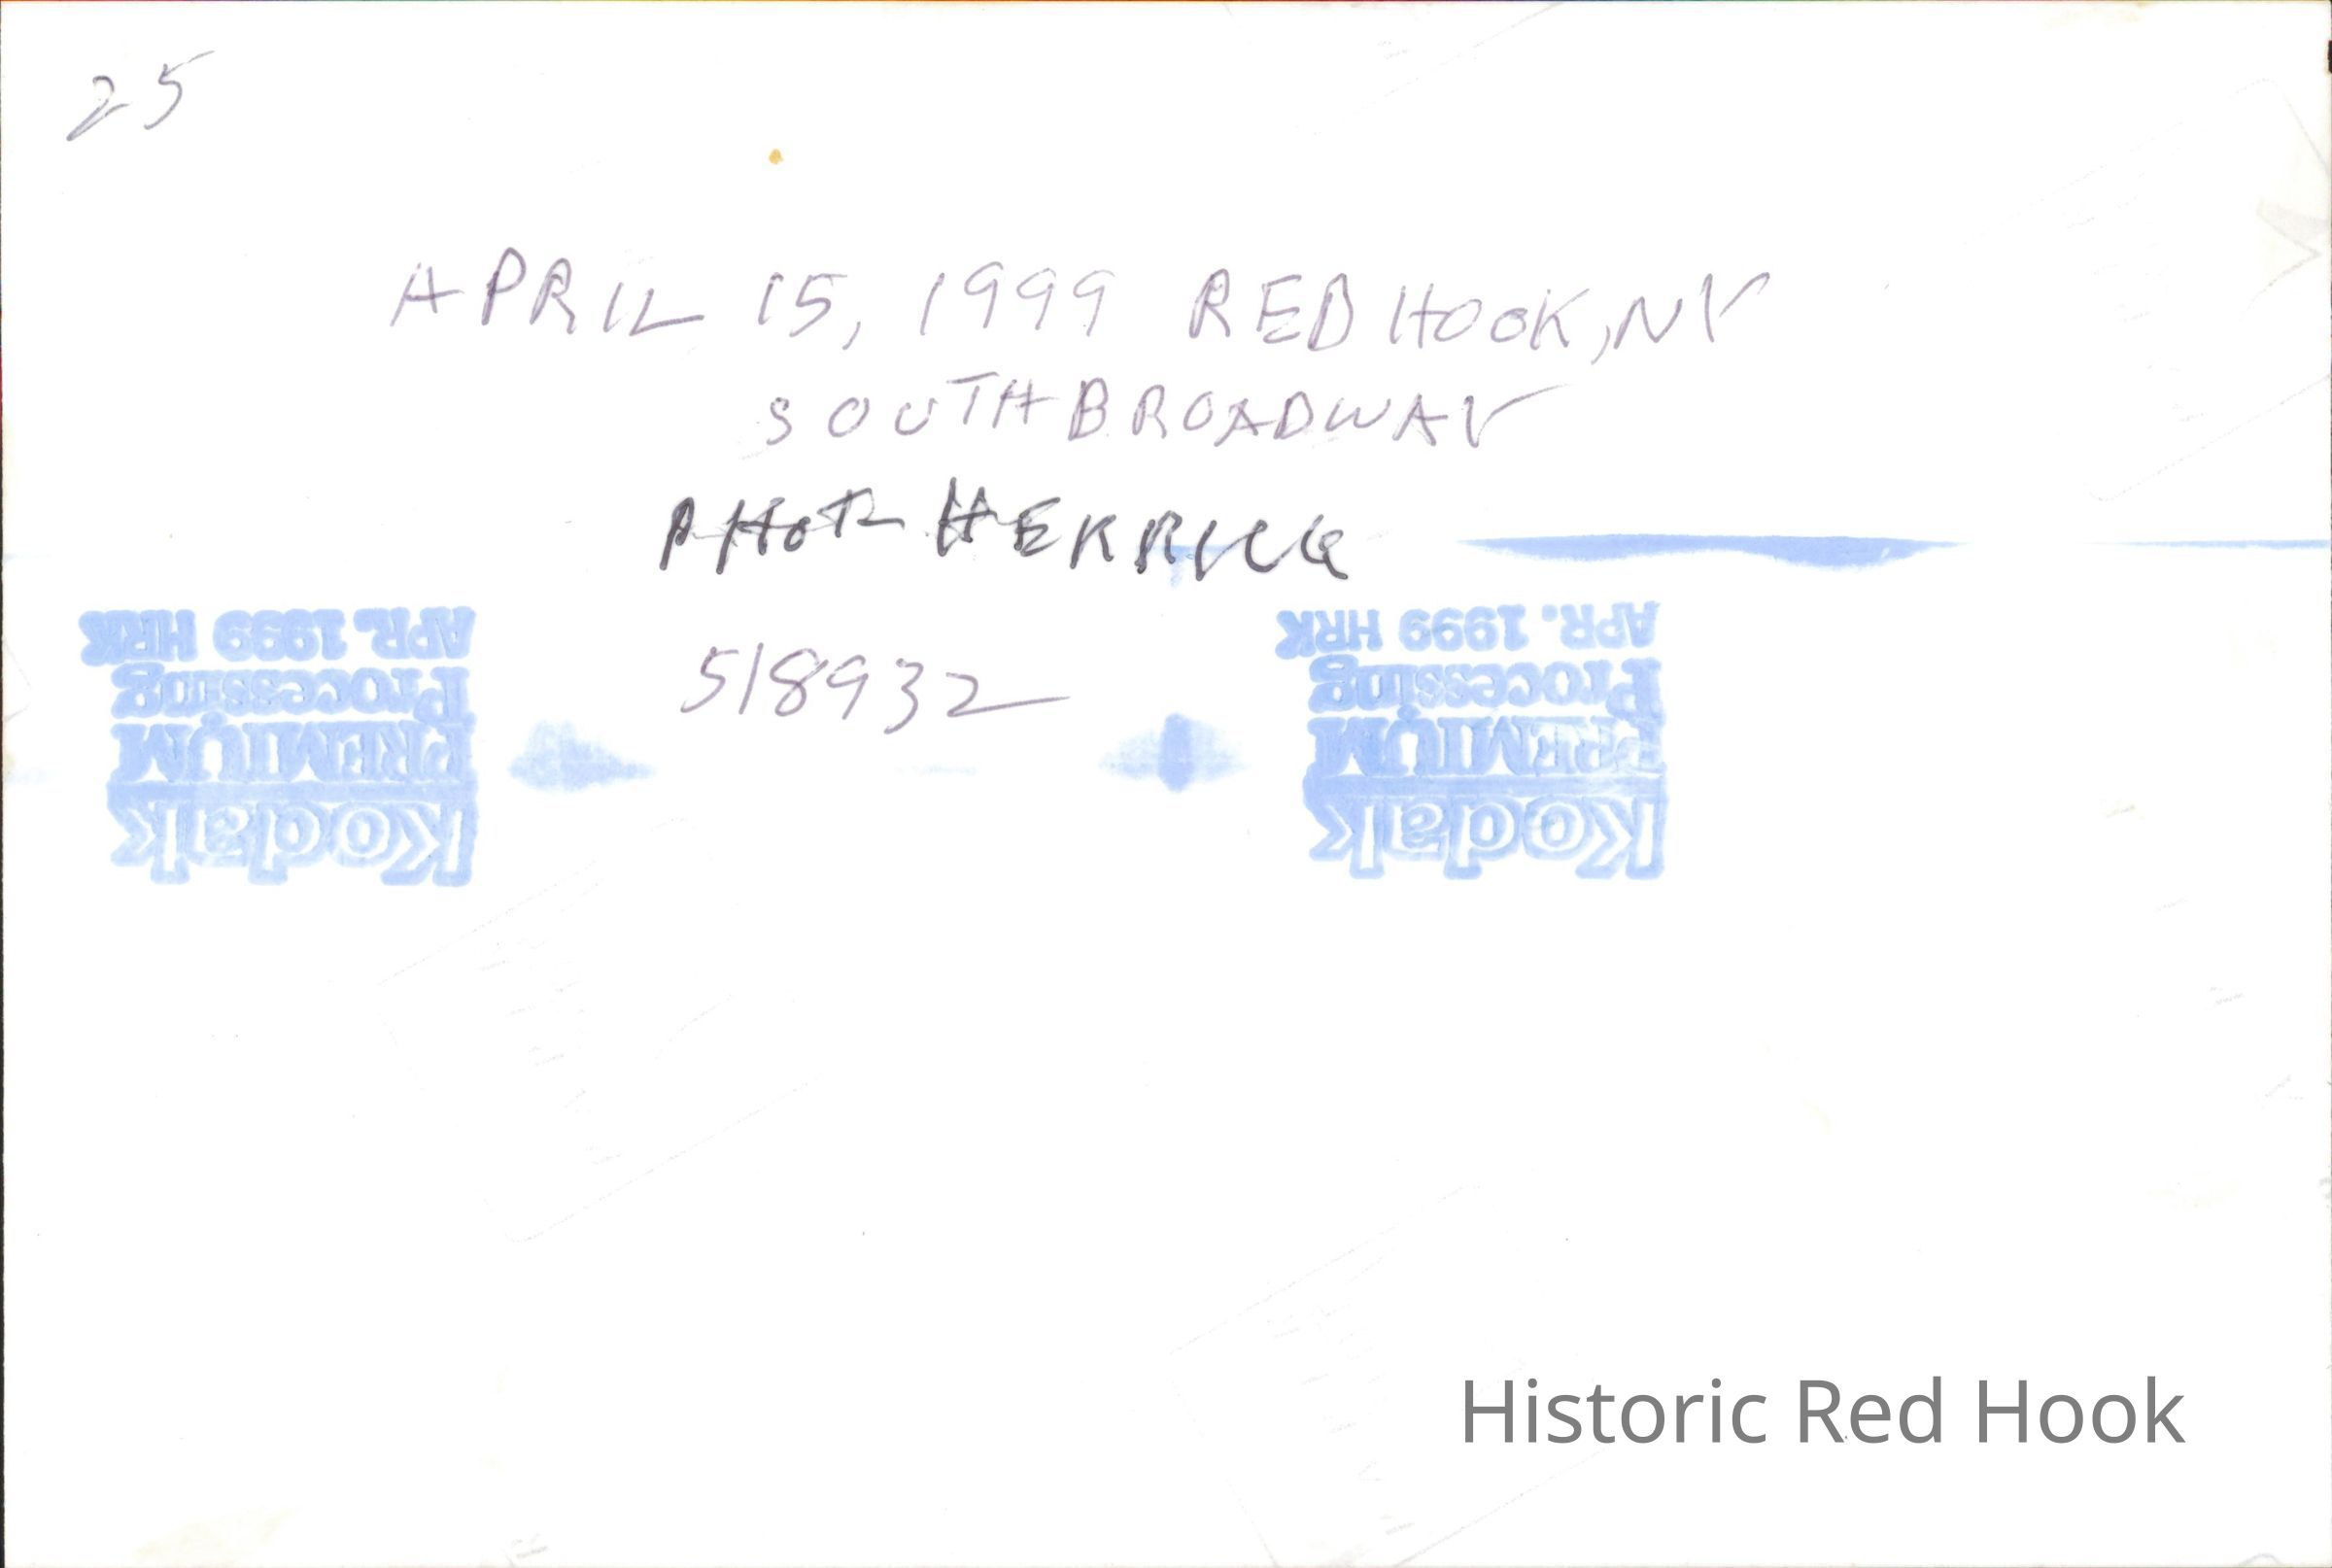 25
APRIL 15, 1999 RED HOOK, NY
SOUTH BROADWAY
PHOT HERRICK
518932
APR. 1999 HRK
Processing
PREMIUM
Kodak
APR. 1999 HRK
Processing
PREMIUM
Kodak
Historic Red Hook